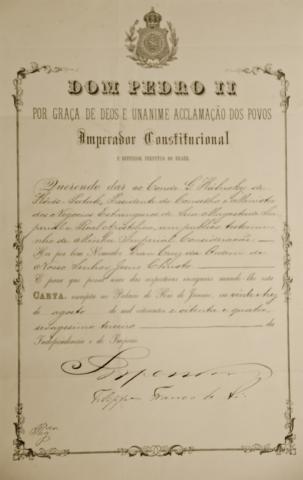 DOM PEDRO II
POR GRAÇA DE DEOS E UNANIME ACCLAMAÇÃO DOS POVOS
Imperador Constitucional
E DEFENSOR PERPETUO DO BRASIL
Querendo dar ao Conde G. Kálnoky de
Presidente do Conselho e Ministro
dos Negocios Estrangeiros de Sua Magestade Im-
perial e Real Apostolica, um publico testemu-
nho da Minha Imperial Consideração:
Hei por bem Gran Cruz da Ordem de
Nosso Senhor Jesus Christo.
E para que possa usar das respectivas insignias mandei-lhe esta
CARTA, no Palacio do Rio de Janeiro, em vinte e tres
de agosto de mil oitocentos e oitenta e quatro,
sexagesimo terceiro da
Independencia e do Imperio.
Imperador
Franco de Sá